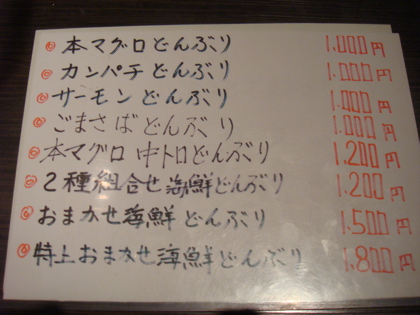 本マグロどんぶり 1,000円
カンパチどんぶり 1,000円
サーモンどんぶり 1,000円
ごまさばどんぶり 1,000円
本マグロ中トロどんぶり 1,200円
2種組合せ海鮮どんぶり 1,200
おまかせ海鮮どんぶり 1,500円
特上おまかせ海鮮どんぶり 1,800円